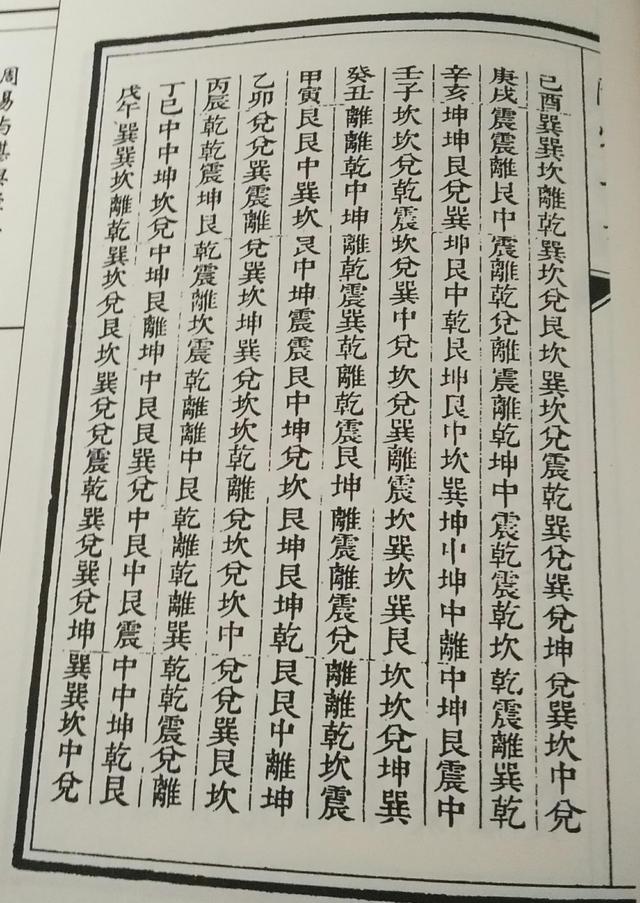 己酉巽巽坎離乾巽坎兌艮坎巽坎兌震乾巽兌巽兌坤兌巽坎中兌
庚戌震震離艮中震離乾兌離震離乾坤中震乾震乾坎乾震離巽乾
辛亥坤坤艮兌巽坤艮中乾艮坤艮中坎巽坤中坤中離中坤艮震中
壬子坎坎兌乾震坎兌巽中兌坎兌巽離震坎巽坎巽艮坎坎兌坤巽
癸丑離離乾中坤離乾震巽乾離乾震艮坤離震離震兌離離乾坎震
甲寅艮艮中巽坎艮中坤震震艮中坤兌坎艮坤艮坤乾艮艮中離坤
乙卯兌兌巽震離兌巽坎坤巽兌坎坎乾離兌坎兌坎中兌兌巽艮坎
丙辰乾乾震坤艮乾震離坎震乾離離中艮乾離乾離巽乾乾震兌離
丁巳中中坤坎兌中坤艮離坤中艮艮巽兌中艮中艮震中中坤乾艮
戊午巽巽坎離乾巽坎兌艮坎巽兌兌震乾巽兌巽兌坤巽巽坎中兌
周易与堪舆